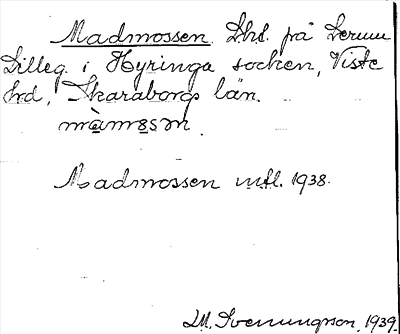 Madmossen. Lhl. på Lerum
Lilleg. i Hyringa socken, Viste
hrd, Skaraborgs län.
màmɷsɷn.
Madmossen mtl. 1938.
M. Svenungsson, 1939.